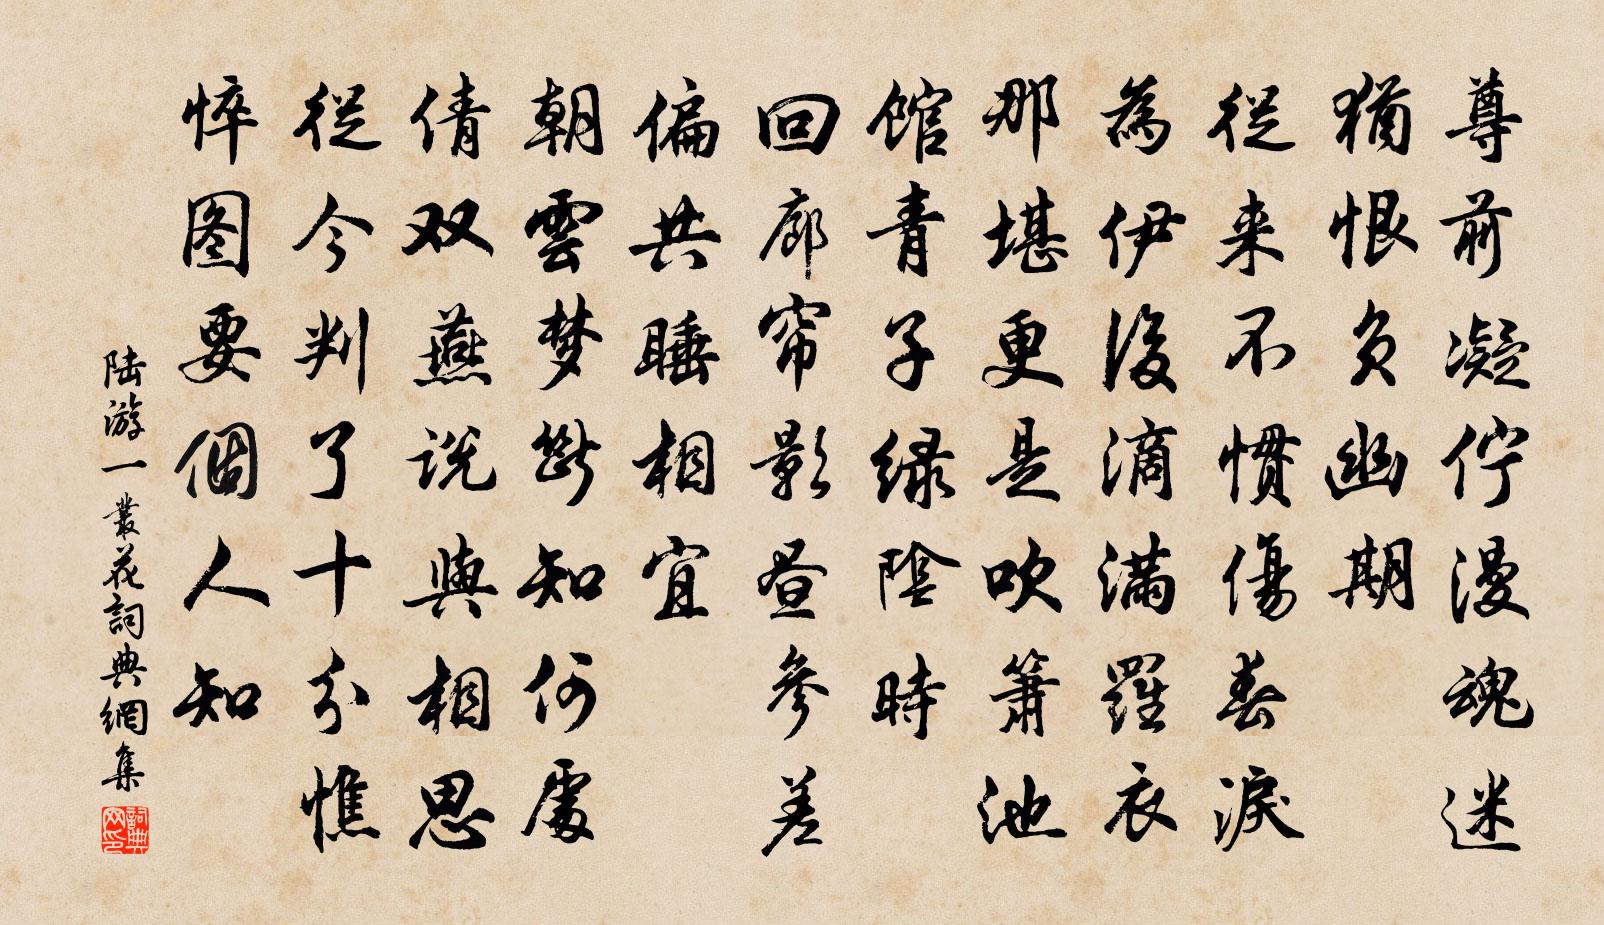 尊前凝佇漫魂迷
猶恨負幽期
從来不慣傷春淚
為伊後滴滿羅衣
那堪更是吹簫池
館青子绿陰時
回廊帘影昼參差
偏共睡相宜
朝雲梦斷知何處
倩双燕説與相思
從今判了十分憔
悴图要個人知
陆游一叢花詞典網集
詞典网印